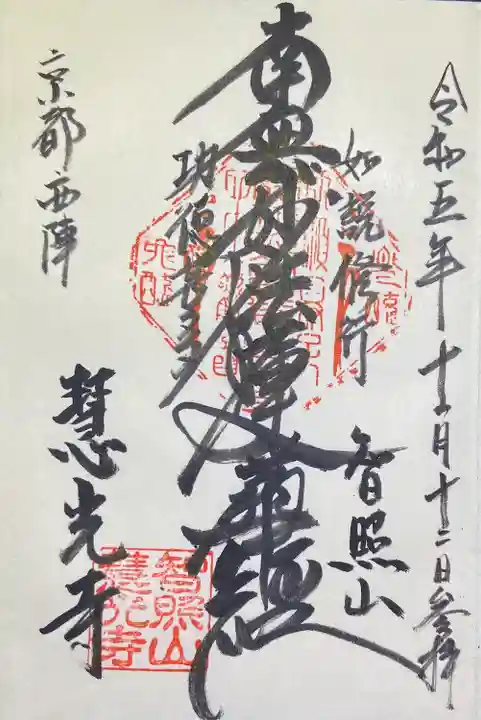 令和五年十一月十二日参拝
如説修行
智照山
南無妙法蓮華経
功徳甚多
京都西陣
慧光寺
智照山
慧光寺